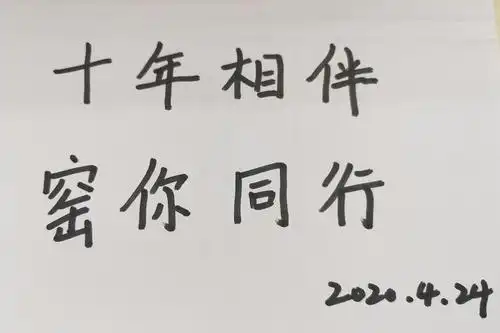 十年相伴
窑你同行
2020.4.24